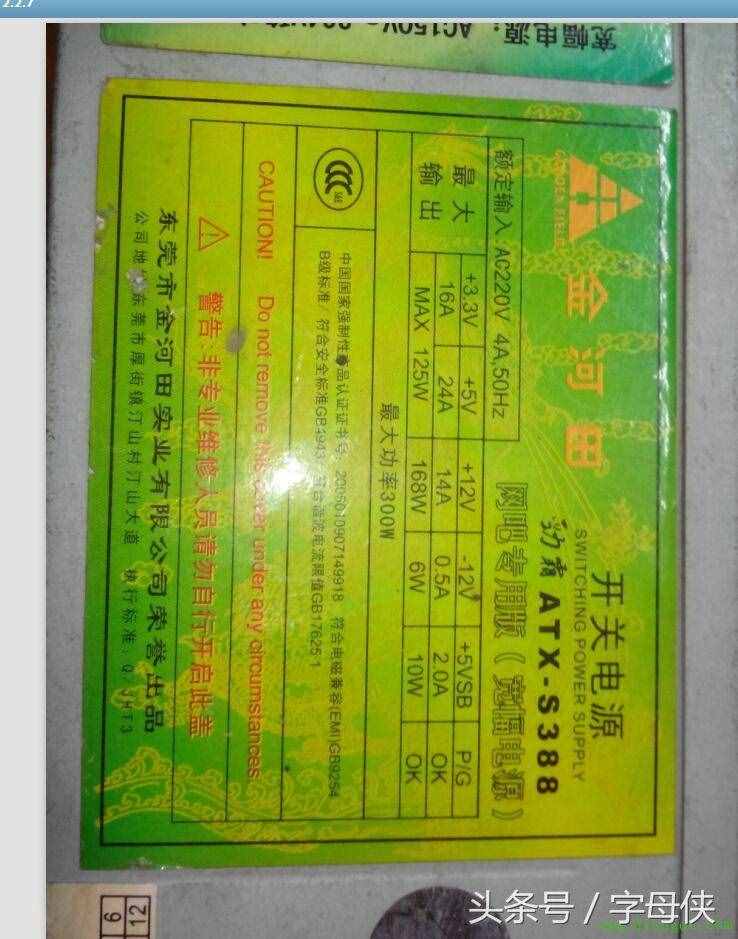 2.2.7
宽幅电源：AC150V
金河田
GOLDEN FIELD
开关电源
SWITCHING POWER SUPPLY
劲霸 ATX-S388
网吧专用版（宽幅电源）
额定输入 AC220V 4A,50Hz
最大输出 +3.3V +5V +12V -12V +5VSB P/G
16A 24A 14A 0.5A 2.0A OK
MAX 125W 168W 6W 10W OK
最大功率300W
CCC
中国国家强制性产品认证证书号：2005010907149918 符合电磁兼容(EMI)GB9254
B级标准 符合安全标准GB4943 符合谐波电流限值GB17625.1
CAUTION! Do not remove this cover under any circumstances
警告：非专业维修人员请勿自行开启此盖
东莞市金河田实业有限公司荣誉出品
公司地址：东莞市厚街镇汀山村汀山大道 执行标准：Q
6
12
头条号 / 字母侠